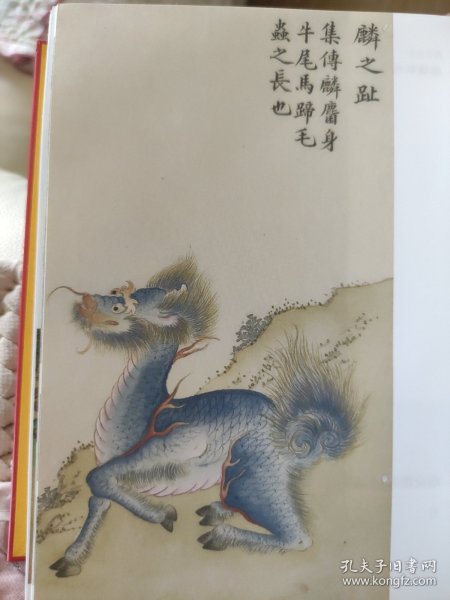 麟之趾
集傳麟麕身
牛尾馬蹄毛
蟲之長也
孔夫子旧书网
www.kongfz.com